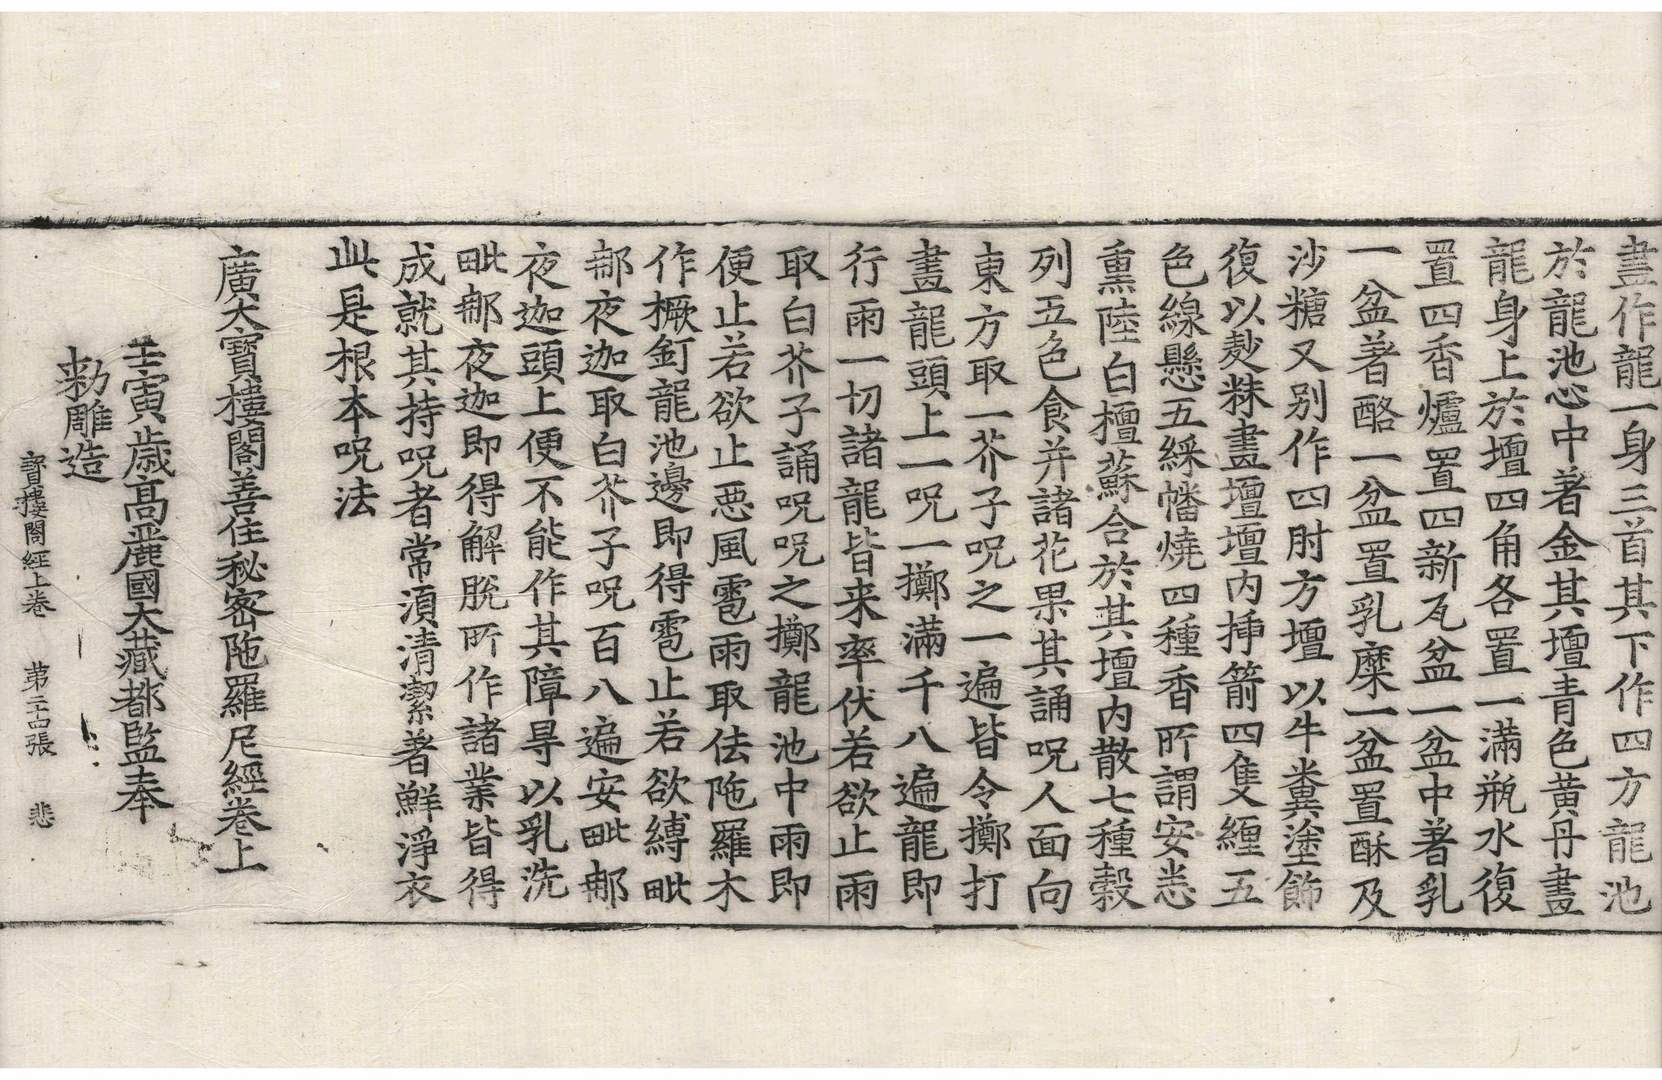 畫作龍一身三首其下作四方龍池
於龍池心中著金其壇青色黃丹畫
龍身上於壇四角各置一滿瓶水復
置四香爐置四新瓦盆一盆中著乳
一盆著酪一盆置乳糜一盆置酥及
沙糖又別作四肘方壇以牛糞塗飾
復以麨粖畫壇壇內揷箭四隻纏五
色線懸五綵幡燒四種香所謂安悉
熏陸白檀蘇合於其壇內散七種穀
列五色食并諸花果其誦呪人面向
東方取一芥子呪之一遍皆令擲打
畫龍頭上一呪一擲滿千八遍龍即
行雨一切諸龍皆来率伏若欲止雨
取白芥子誦呪呪之擲龍池中雨即
便止若欲止惡風雹雨取佉陁羅木
作橛釘龍池邊即得雹止若欲縛毗
那夜迦取白芥子呪百八遍安毗那
夜迦頭上便不能作其障㝵以乳洗
毗那夜迦即得解脫所作諸業皆得
成就其持呪者常須清潔著鮮淨衣
此是根本呪法
廣大寶樓閣善住秘密陁羅尼經卷上
壬寅歲高麗國大藏都監奉
勅雕造
寶樓閣經上卷 第二十四張 悲